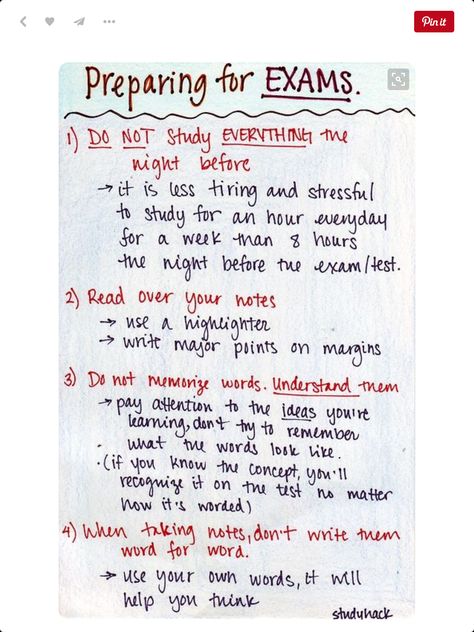 Pin it
Preparing for EXAMS.
1) DO NOT study EVERYTHING the
night before
→ it is less tiring and stressful
to study for an hour everyday
for a week than 8 hours
the night before the exam/test.
2) Read over your notes
→ use a highlighter
→ write major points on margins
3) Do not memorize words. Understand them
→ pay attention to the ideas you're
learning, don't try to remember
what the words look like.
(if you know the concept, you'll
recognize it on the test no matter
how it's worded)
4) When taking notes, don't write them
word for word.
→ use your own words, it will
help you think
studyhack